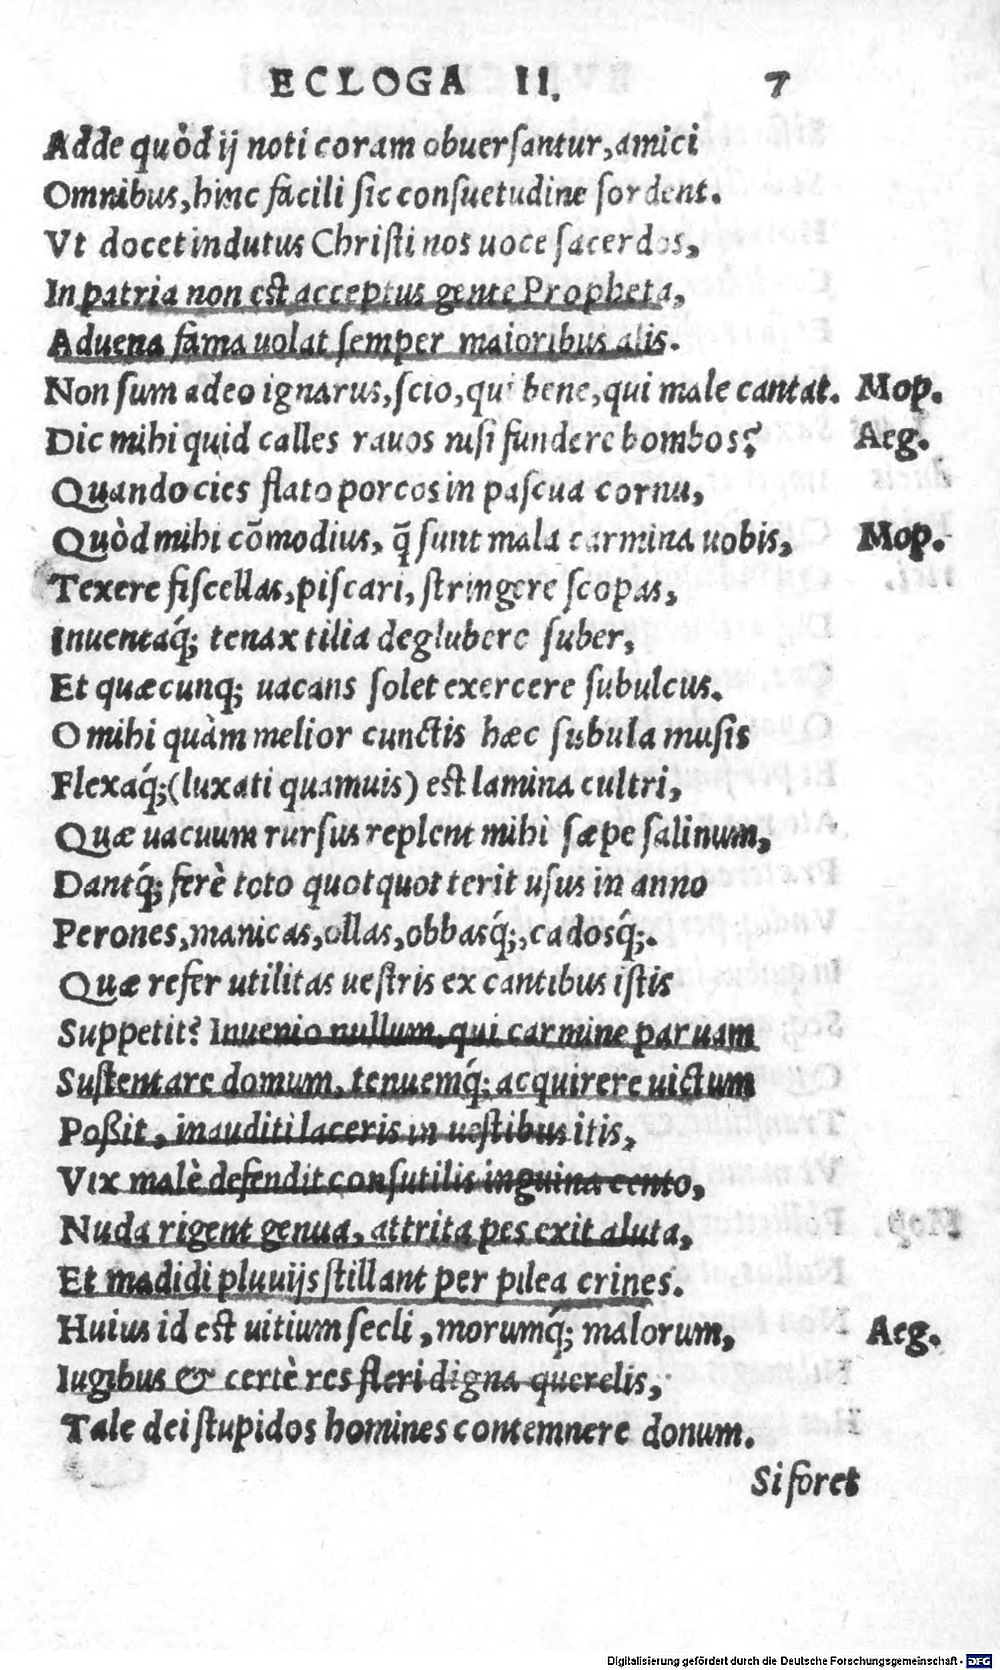 ECLOGA II. 7
Adde quòd ij noti coram obuerſantur, amici
Omnibus, hinc facili ſic conſuetudine ſordent.
Vt docet indutus Chriſti nos uoce ſacerdos,
In patria non eſt acceptus gente Propheta,
Aduena fama uolat ſemper maioribus alis.
Non ſum adeo ignarus, ſcio, qui bene, qui male cantat. Mop.
Dic mihi quid calles rauos niſi fundere bombos? Aeg.
Quando cies flato porcos in paſcua cornu,
Quòd mihi cõmodius, q̃ ſunt mala carmina uobis, Mop.
Texere fiſcellas, piſcari, ſtringere ſcopas,
Inuentaq́; tenax tilia deglubere ſuber,
Et quæcunq; uacans ſolet exercere ſubulcus.
O mihi quàm melior cunctis hæc ſubula muſis
Flexaq́; (luxati quamuis) eſt lamina cultri,
Quæ uacuum rurſus replent mihi ſæpe ſalinum,
Dantq́; ferè toto quotquot terit uſus in anno
Perones, manicas, ollas, obbasq́;, cadosq́;.
Quæ refer utilitas ueſtris ex cantibus iſtis
Suppetit? Inuenio nullum, qui carmine paruam
Suſtentare domum, tenuemq́; acquirere uictum
Poßit, inauditi laceris in ueſtibus itis,
Vix malè defendit conſutilis inguina cento,
Nuda rigent genua, attrita pes exit aluta,
Et madidi pluuijs ſtillant per pilea crines.
Huius id eſt uitium ſecli, morumq́; malorum, Aeg.
Iugibus & certè res fleri digna querelis,
Tale dei ſtupidos homines contemnere donum.
Si foret
Digitalisierung gefördert durch die Deutsche Forschungsgemeinschaft - DFG